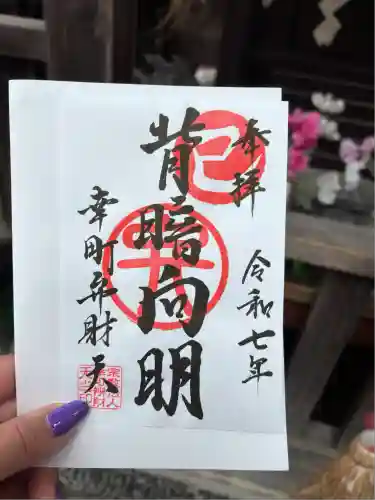 奉拝
令和七年
背暗向明
巳
幸町弁財天